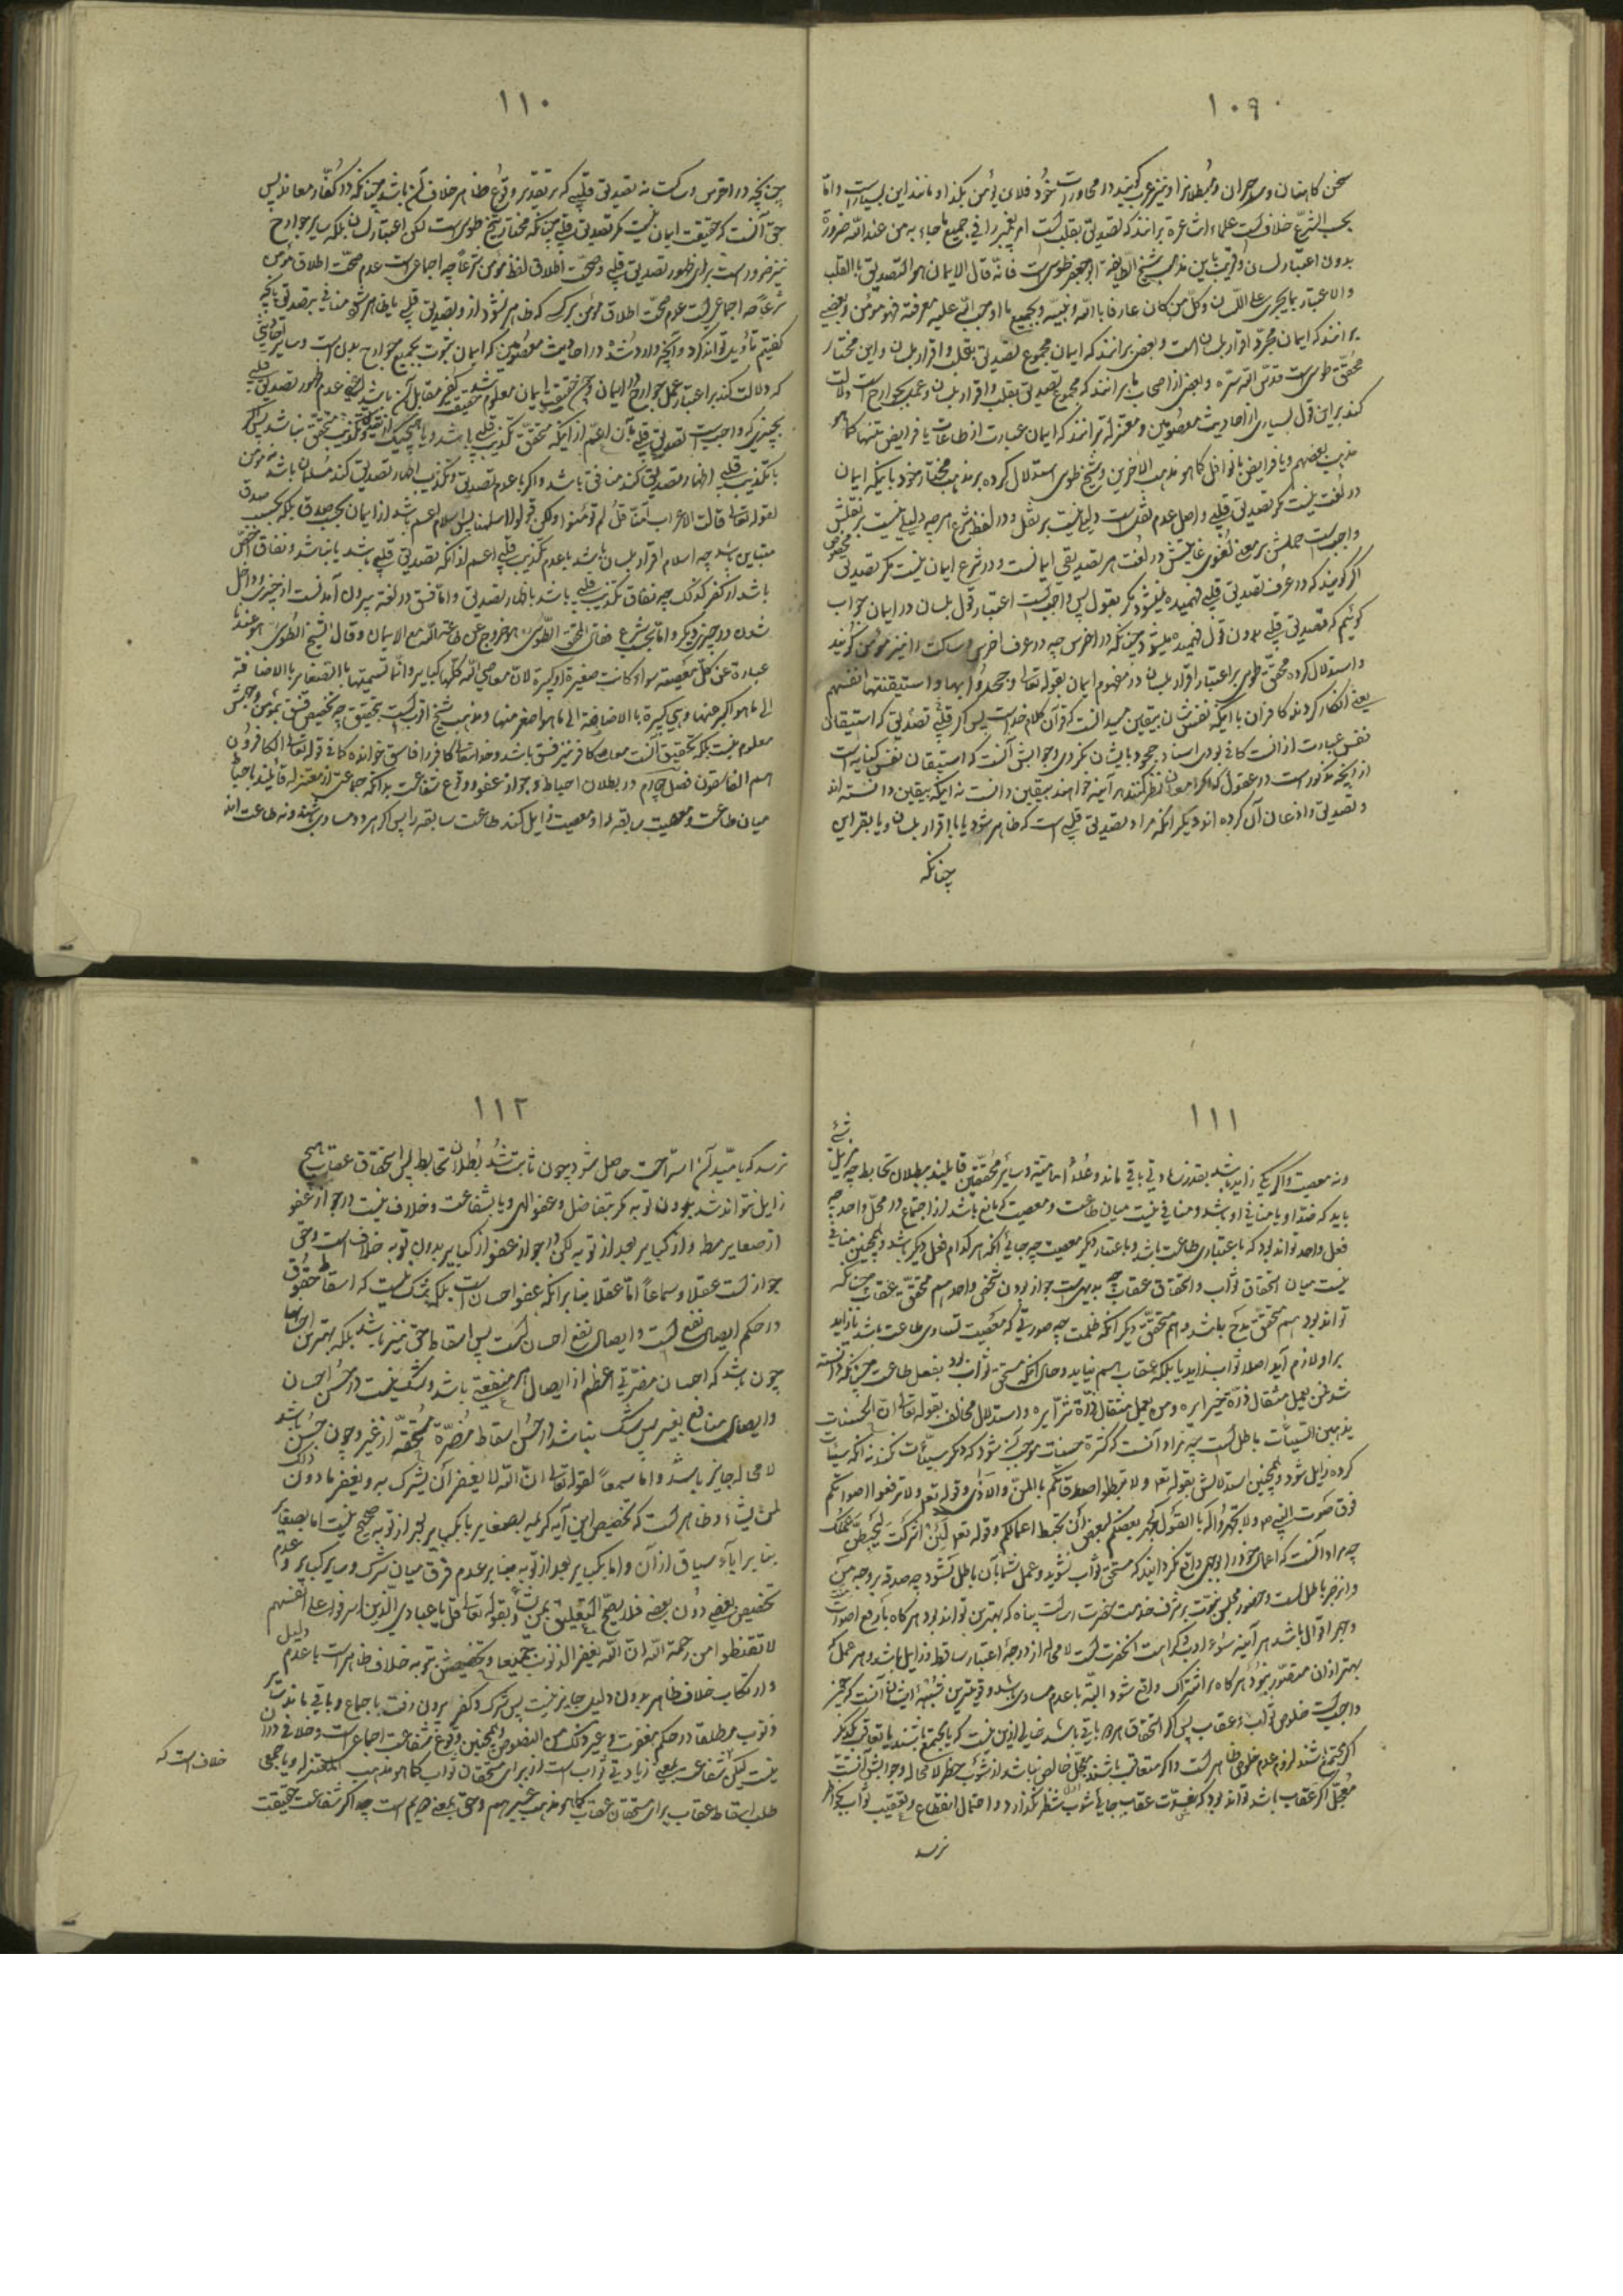 ١٠٩
سخن کاهنان و ساحران و مبطلانرا و نیز عرب گویند در محاورات خود فلان یؤمن بکذا و مانند این بسیار است و امّا
بحسب الشرع خلاف است علماء اشاعره برانند که تصدیق بقلب است امر پیغمبر را فی جمیع ما جاء به من عند الله ضرورة
بدون اعتبار لسان و قریب باین مذهب شیخ الطایفه ابو جعفر طوسی است فانّه قال الایمان هو التصدیق بالقلب
ولا اعتبار بما یجری علی اللسان و کلّ من کان عارفا بالله و نبیّه و بجمیع ما اوجب الله علیه معرفته فهو مؤمن و بعضی
برانند که ایمان مجرّد اقرار بلسان است و بعضی برانند که ایمان مجموع تصدیق بقلب و اقرار بلسان و این مختار
محقّق طوسی است قدّس الله سرّه و بعضی از اصحاب ما برانند که مجموع تصدیق بقلب و اقرار بلسان و عمل بجوارح است و دلالت
کند بر این قول بسیاری از احادیث معصومین و معتزله برانند که ایمان عبارت از طاعات یا فرایض تنها کما هو
مذهب بعضهم و یا فرایض با نوافل کما هو مذهب الآخرین و شیخ طوسی استدلال کرده بر مذهب مختار خود باینکه ایمان
در لغت نیست مگر تصدیق قلبی و اصل عدم نقلست و دلیلی نیست بر نقل و در لفظ شرع هر چه دلیلی نیست بر نقلش
واجبست حملش بر معنی لغوی غایتش در لغت هر تصدیقی ایمانست و در شرع ایمان نیست مگر تصدیق مخصوص
اگر گویند که در عرف تصدیق قلبی فهمیده نمیشود مگر بقول پس واجبست اعتبار قول بلسان در ایمان جواب
گوئیم که تصدیق قلبی بدون قول فهمیده میشود چنانکه در اخرس چه در عرف اخرس و ساکت را نیز مؤمن گویند
و استدلال کرده محقّق طوسی بر اعتبار اقرار بلسان در مفهوم ایمان بقوله تعالی وجحدوا بها واستیقنتها انفسهم
یعنی انکار کردند کافران با آنکه نفس شان بیقین میدانست که قرآن کلام خداست پس اگر قلبی تصدیقی که استیقان
نفس عبارت از انست کافی بودی اسناد جحود بایشان نکردی و جوابش آنست که استیقان نفس کنایه است
از آنچه مذکور است در عقول که اگر امعان نظر کنند هر آینه خواهند بیقین دانست نه اینکه بیقین دانسته اند
و تصدیق و اذعان آن کرده اند و دیگر آنکه مراد تصدیق قلبی است که ظاهر شود یا باقرار بلسان و یا بقراین
چنانکه
١١٠
چنانچه در اخرس و ساکت نه تصدیق قلبی که بر تقدیر وقوع ظاهر خلاف آن باشد چنانکه در کفّار معاند پس
حق آنست که حقیقت ایمان نیست مگر تصدیق قلبی چنانکه مختار شیخ طوسی است لکن اعتبار لسان بلکه سایر جوارح
نیز ضرور است برای ظهور تصدیق قلبی و صحّت اطلاق لفظ مؤمن شرعاً چه اجماعی است عدم صحّت اطلاق مؤمن
شرعاً چه اجماعی است عدم صحّت اطلاق مؤمن بر کسی که ظاهر نشود ازو تصدیق قلبی یا ظاهر شود منافی بر تصدیق بآنچه
گفتیم تأویل تواند کرد و آنچه وارد شده در احادیث معصومین که ایمان بثبوت بجمیع جوارح بدل است و سایر احادیثی
که دلالت کند بر اعتبار عمل جوارح در ایمان و چون حقیقت ایمان معلوم شد حقیقت کفر مقابل آن باشد یعنی عدم ظهور تصدیق قلبی
بچیزی که واجبست تصدیق قلبی بآن اعمّ از آنکه متحقق تکذیب قلبی باشد و یا هیچیک از تصدیق و تکذیب متحقق نباشد پس اگر
با تکذیب قلبی اظهار تصدیق کند منافق باشد و اگر با عدم تصدیق و تکذیب اظهار تصدیق کند مسلمان باشد نه مؤمن
لقوله تعالی قالت الاعراب آمنّا قل لم تؤمنوا ولکن قولوا اسلمنا پس اسلام اعمّ باشد از ایمان بحسب صدق بلکه بحسب صدق
متباین باشد چه اسلام اقرار بلسان باشد با عدم تکذیب قلبی اعمّ از آنکه تصدیق قلبی باشد یا نباشد و نفاق اخصّ
باشد از کفر کذلک چه نفاق تکذیب قلبی باشد با اظهار تصدیق و امّا فسق در لغت بیرون آمدنست از چیزی و داخل
شدن در چیزی دیگر و امّا بحسب شرع فقال المحقق الطّوسی هو خروج عن طاعة الله مع الایمان و قال الشیخ الطّوسی هو عندنا
عبارة عن کلّ معصیة سواء کانت صغیرة او کبیرة لانّ معاصی الله کلّها کبایر و انّما تسمیتها بالصغایر بالاضافة
الی ما هو اکبر منها و هی کبیرة بالاضافة الی ما هو اصغر منها و مذهب شیخ اقربست بتحقیق چه تخصیص فسق بمؤمن وجهش
معلوم نیست بلکه تحقیق آنست که کافر نیز فاسق باشد و خدا تعالی کافر را فاسق خوانده کما فی قوله تعالی والکافرون
هم الفاسقون فصل چهارم در بطلان احباط و جواز عفو و وقوع شفاعت بدانکه جماعتی از معتزله قائلند باحباط
میان طاعت و معصیت سابقه اند و معصیت زایل کند طاعت سابقه را پس اگر هر دو مساوی باشند نه طاعت ماند
١١١
ونه معصیت و اگر یکی زاید باشد بقدر زیادتی باقی ماند و علماء امامیّه و سایر محقّقین قایلند ببطلان تحابط چه مزیل شئ
باید که ضدّ او یا منافی او باشد و منافی نیست میان طاعت و معصیت که مانع باشد از اجتماع در محلّ واحد چه
فعل واحد تواند بود که باعتباری طاعت باشد و باعتبار دیگر معصیت چه جای آنکه هر کدام فعل دیگر باشد و همچنین منافی
نیست میان استحقاق ثواب و استحقاق عقاب چه بدیهی است جواز بودن شخص واحد هم مستحقّ عقاب چنانکه
تواند بود هم مستحقّ مدح باشد و هم مستحقّ ذم دیگر آنکه ظلمست چه صورتی که معصیت مساوی طاعت باشد یا زاید
بر او لازم آید اصلا ثواب نداید یا بلکه عقاب هم نیاید و حال آنکه مستحق ثواب بود بفعل طاعت چنانکه دانسته
شد فمن یعمل مثقال ذرّة خیرا یره ومن یعمل مثقال ذرّة شرّا یره و استدلال مخالف بقوله تعالی انّ الحسنات
یذهبن السیّئات باطل است چه مراد آنست که کثرة حسنات موجب آن شود که دیگر سیّئات نکند نه آنکه سیئات
کرده زایل شود و همچنین استدلالش بقوله تعالی ولا تبطلوا صدقاتکم بالمنّ والاذی و قوله تعالی ولا ترفعوا اصواتکم
فوق صوت النبی ولا تجهروا له بالقول کجهر بعضکم لبعض ان تحبط اعمالکم و قوله تعالی لئن اشرکت لیحبطنّ عملک
چه مراد آنست که اعمال خود را بوجهی واقع نگردانید که مستحق ثواب نشوید و عمل شما بآن باطل نشود چه صدقه بر وجه منّ
و انزجر باطل است و حضور مجلس نبوّت و شرف خدمت حضرت رسالت پناه که بهترین تواند بود هر گاه با رفع اصوات
و جهر اقوال باشد هر آینه سوء ادب و کراهت آنحضرت است لا محاله از درجهٔ اعتبار ساقط و زایل باشد و هر عمل که
بهتر از ان متصوّر نبود هر گاه بر اشتراک واقع شود البتّه با عدم مساوی باشد و قویترین شبههٔ ایشان آنست که چون
واجبست خلوص ثواب و عقاب پس اگر استحقاق هر دو باقی باشد خالی ازین نیست که یا مجتمع باشند یا متعاقب یکدیگر
اگر مجتمع باشند لزوم عدم خلوص ظاهر است و اگر متعاقب باشند معجّل خالص نباشد از شوب خطر لا محاله و جوابش آنست
معجّل اگر عقاب باشد تواند بود که بشدّت عقاب جای شوب نظر نگذارد و احتمال انقطاع و تعقیب ثواب بخاطر
نرسد
١١٢
نرسد که بامید آن استراحت حاصل شود چون ثابت شد بطلان تحابط پس استحقاق عقاب هیچ
زایل نتواند شد بدون توبه مگر بتفاضل و عفو الهی و یا بشفاعت و خلاف نیست در جواز عفو
از صغایر مطلقا و از کبایر بعد از توبه لکن در جواز عفو از کبایر بدون توبه خلاف است و حق
جواز است عقلا و سماعاً امّا عقلا بنا بر آنکه عفو احسان است بلکه شک نیست که اسقاط حقوق
در حکم ایصال نفع است و ایصال نفع احسان است پس اسقاط حق نیز باشد بلکه بهترین احسانها
چون باشد که احسان مضرّتی اعظم از ایصال هر منفعتی باشد و شک نیست در حسن احسان
و ایصال منافع بغیر پس شک نباشد در حسن اسقاط مضرّة مستحقّه از غیر و چون حسن باشد
لا محاله جایز باشد و اما سمعاً لقوله تعالی انّ الله لا یغفر أن یشرک به ویغفر ما دون ذلک
لمن یشاء و ظاهر است که تخصیص این آیه کریمه بصغایر یا بکبایر بعد از توبه صحیح نیست اما بصغایر
بنا بر اباء سیاق از آن و اما بکبایر بعد از توبه بنا بر عدم فرق میان شرک و سایر کبایر و عدم
تخصیص بعضی دون بعض فلا یصحّ التعلیق بمن یشاء و بقوله تعالی قل یا عبادی الّذین اسرفوا علی انفسهم
لا تقنطوا من رحمة الله انّ الله یغفر الذنوب جمیعا و تخصیصش بتوبه خلاف ظاهر است با عدم دلیل
و ارتکاب خلاف ظاهر بدون دلیل جایز نیست پس شرک و کفر بیرون رفت باجماع و باقی ماند سایر
ذنوب مطلقا در حکم مغفرت و غیر ذلک من النصوص و همچنین وقوع شفاعت اجماعی است و خلافی در آن
نیست لیکن شفاعت بمعنی زیادتی ثواب است از برای مستحقان ثواب کما هو مذهب المعتزله و یا بمعنی
خلاف است که
طلب اسقاط عقاب برای مستحقان عقاب کما هو مذهب غیرهم و حق بمعنی دویم است چه اگر شفاعت حقیقت